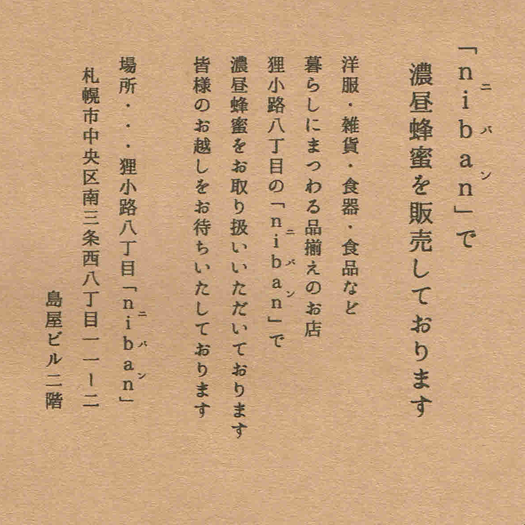 「niban」で
ニバン
濃昼蜂蜜を販売しております
洋服・雑貨・食器・食品など
暮らしにまつわる品揃えのお店
狸小路八丁目の「niban」で
ニバン
濃昼蜂蜜をお取り扱いいただいております
皆様のお越しをお待ちいたしております
場所・・・狸小路八丁目「niban」
ニバン
札幌市中央区南三条西八丁目一一ー二
島屋ビル二階